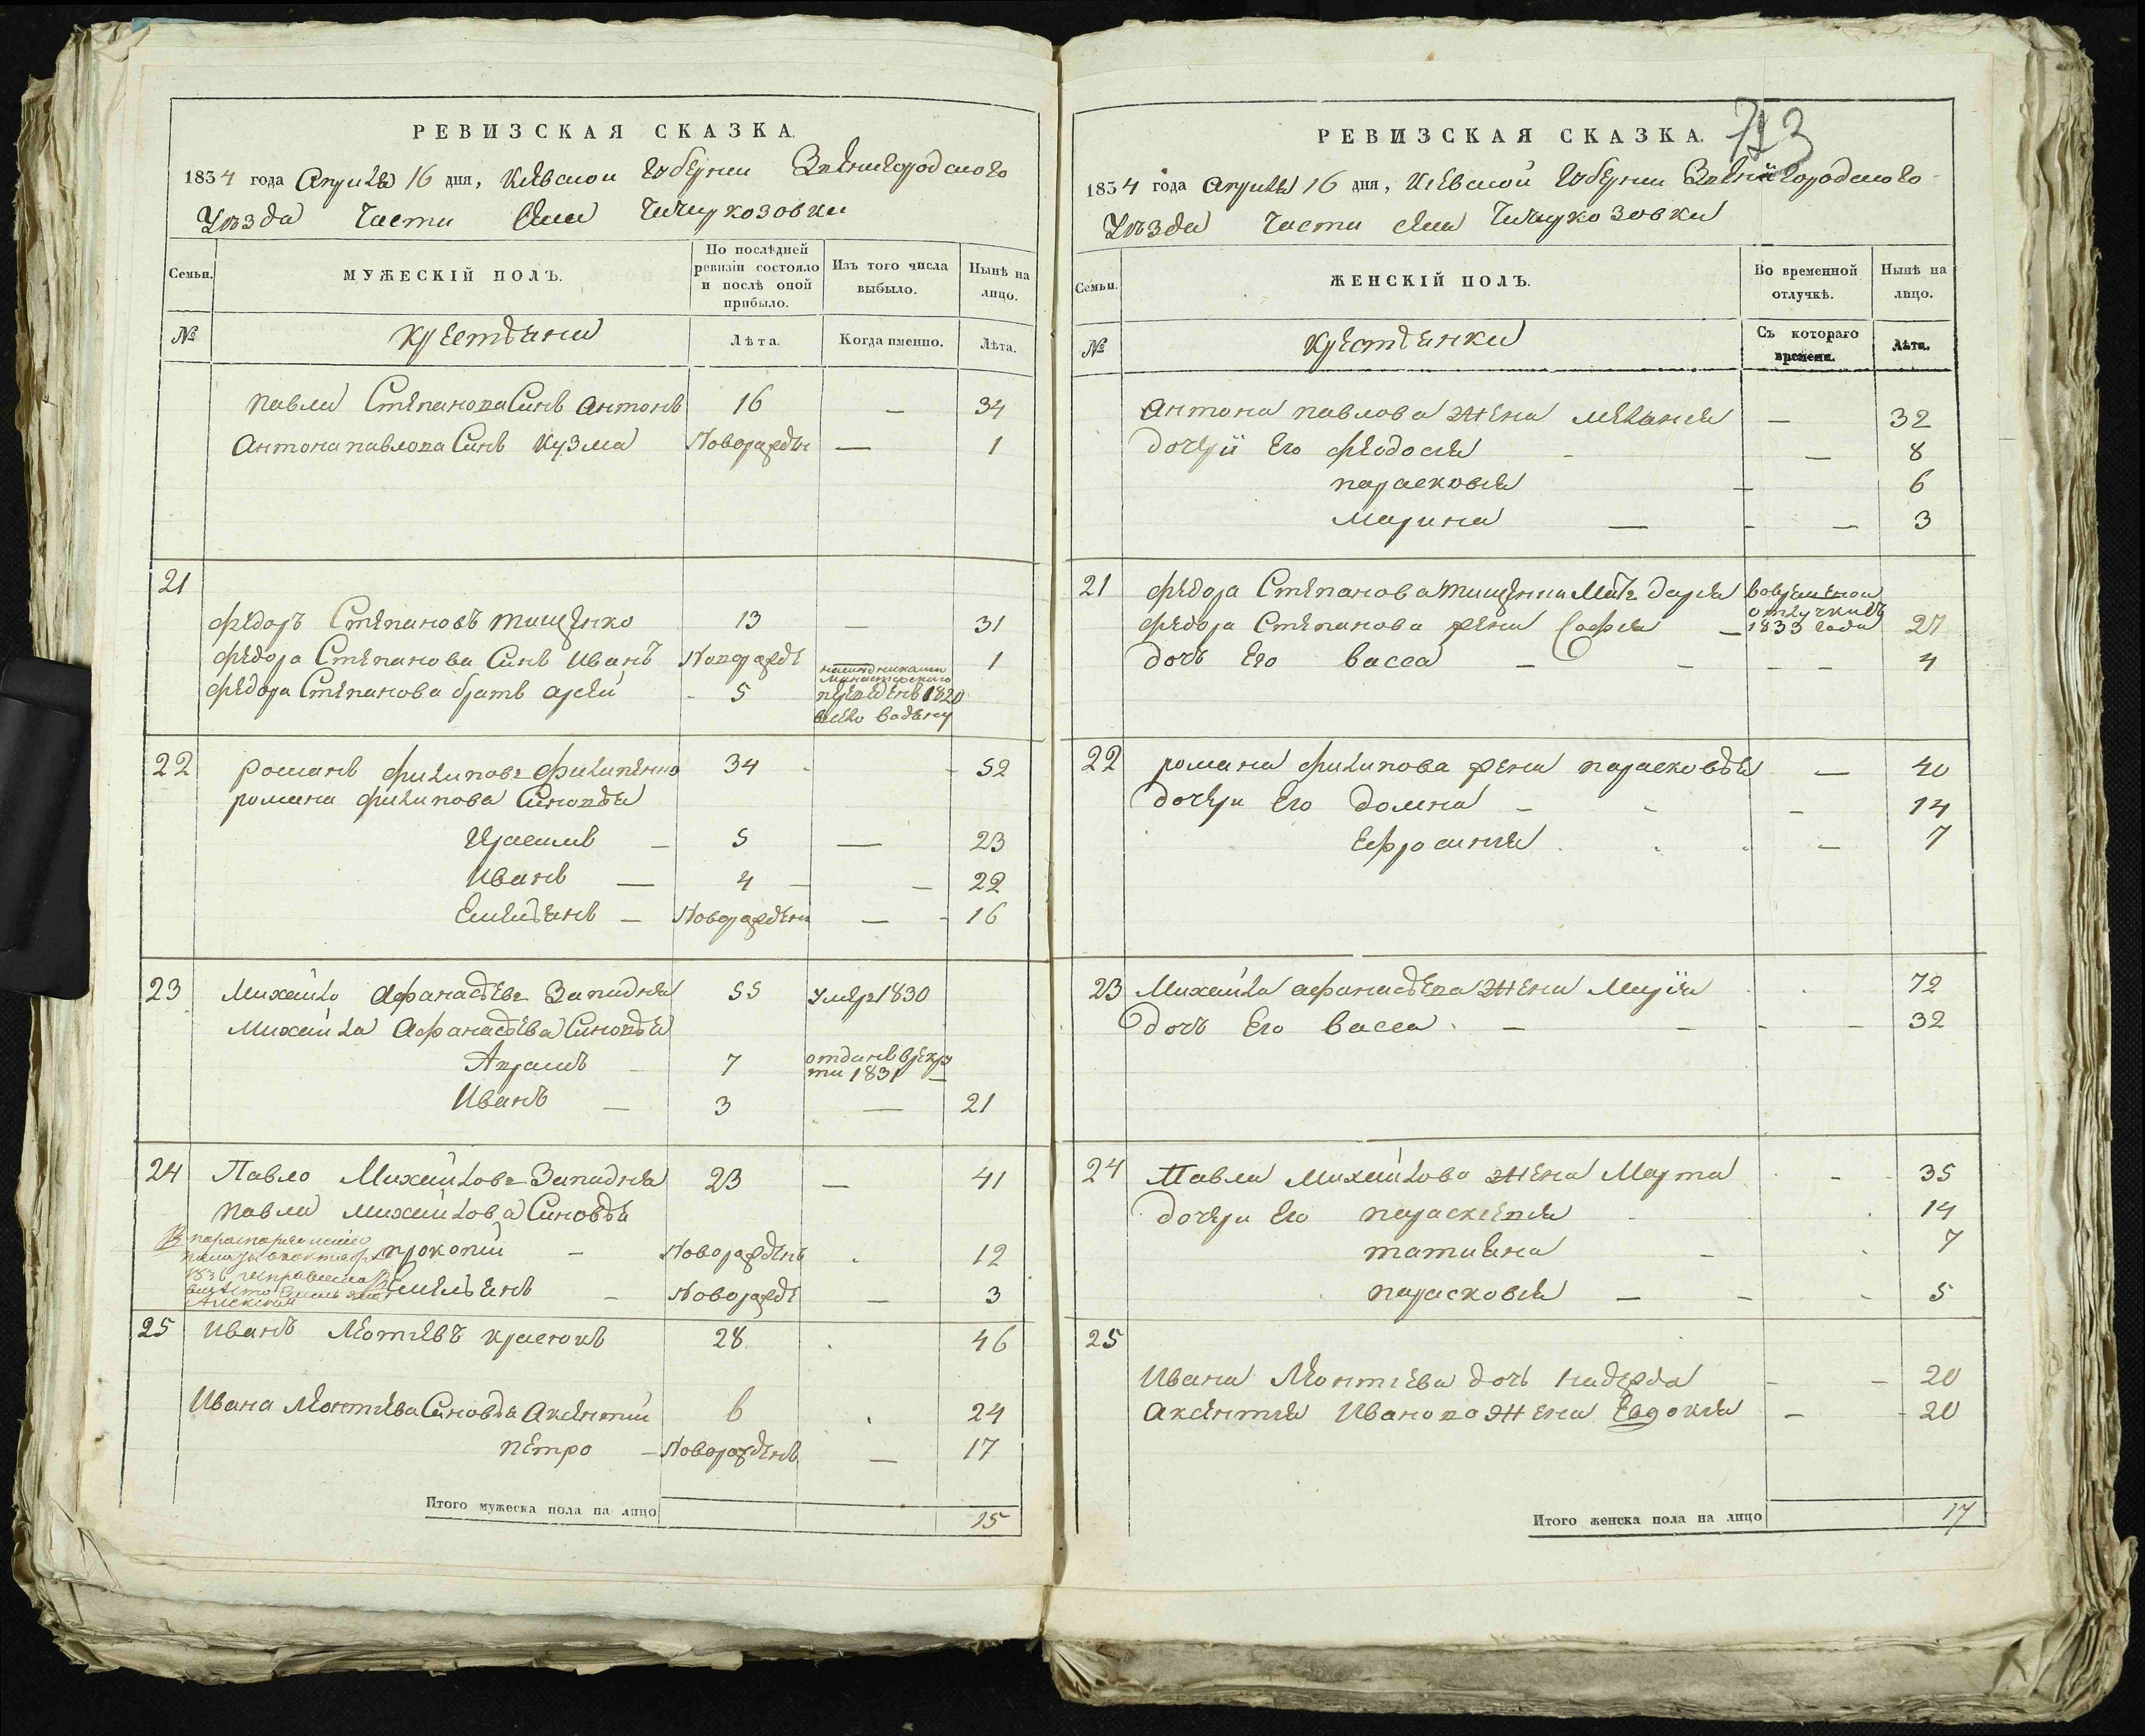 РЕВИЗСКАЯ СКАЗКА.
1834 года Апреля 16 дня, Киевской Губернии Звенигородского
Уѣзда Части Села Чичиркозовки
Семьи.
МУЖЕСКІЙ ПОЛЪ.
По послѣдней ревизіи состояло и послѣ оной прибыло.
Изъ того числа выбыло.
Нынѣ на лицо.
№
Крестьяни
Лѣта.
Когда именно.
Лѣта.
Павла Степанова Синъ Антонъ 16 — 34
Антона Павлова Синъ Кузма Новорожден — 1
21
Федоръ Степановъ Тищенко 13 — 31
Федора Степанова Синъ Иванъ Новорожде 1
Федора Степанова братъ 5
1820
22 Романъ Филиповъ Филипенко 34 - - 52
Романа Филипова Синовья
Герасимъ — 5 — 23
Иванъ — 4 — — 22
Емельянъ — Новорожден — - 16
23 Михайло Афанасьевъ Западня 55 умер 1830
Михайла Афанасьева Синовья
Аврамъ - 7 отданъ в рекру
ти 1831 —
Иванъ — 3 — 21
24 Павло Михайловъ Западня 23 — 41
Павла Михайлова Синовья
Прокопий - Новорожденъ . 12
1836 исправлена
вместо
Алексей
Емельянъ - Новорожде — 3
25 Иванъ Леотиевъ 28 . 46
Ивана Леонтиева Синовья Аксентий 6 . 24
Петро — Новорожденъ — 17
Итого мужеска пола на лицо 15
РЕВИЗСКАЯ СКАЗКА.
713
1834 года Апреля 16 дня, Киевской Губернии Звенигородского
Уѣзда Части села Чичиркозовки
Семьи.
ЖЕНСКІЙ ПОЛЪ.
Во временной отлучкѣ.
Нынѣ на лицо.
№
Крестьянки
Съ котораго времени.
Лѣта.
Антона Павлова жена Мелания — 32
Дочери Его Феодосия - — 8
Парасковия — 6
Марина — - — 3
21 Федора Степанова Тищенка Мать Дария вовременой
отлучки съ
1833 года
Федора Степанова жена София — 27
Дочь Его Васса — - — — 4
22 Романа Филипова жена Парасковья — 40
Дочери Его Домна - - — 14
Ефросиния . . . — 7
23 Михайла Афанасьева жена Мария . . 72
Дочь Его Васса . — — - — 32
24 Павла Михайлова жена Марта . - . 35
Дочери Его Параскевия . . 14
Татиана - . 7
Парасковия — - - 5
25
Ивана Леонтиева дочь Надежда - — 20
Аксентия Иванова жена Евдокия — - 20
Итого женска пола на лицо 17